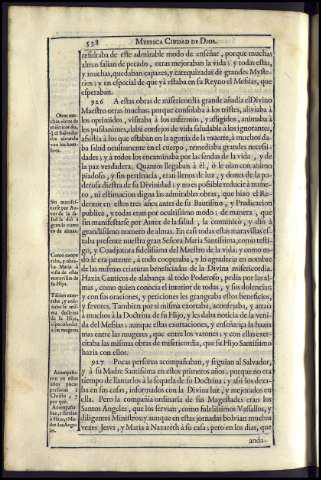 538 MYSTICA CIUDAD DE DIOS.
resultaba de este admirable modo de enseñar, porque muchas
almas salian de pecado, otras mejoraban la vida: y todas estas,
y muchas, quedaban capazes, y catequizadas de grandes Myste-
rios; y en especial de que yà estaba en su Reyno el Mesias, que
esperaban.
926 A estas obras de misericordia grande añadia el Divino
Maestro otras muchas: porque consolaba à los tristes, aliviaba à
los oprimidos, visitaba à los enfermos, y afligidos, animaba à
los pusilanimes, daba consejos de vida saludable à los ignorantes,
assistia à los que estaban en la agonìa de la muerte, à muchos da-
ba salud ocultamente en el cuerpo, remediaba grandes necessi-
dades; y à todos los encaminaba por las sendas de la vida, y de
la paz verdadera. Quantos llegaban à èl, ò le oìan con animo
piadoso, y sin pertinacia, eran llenos de luz, y dones de la po-
derosa diestra de su Divinidad; y no es possible reducir à nume-
ro, ni estimacion digna las admirables obras, que hizo el Re-
demptor en estos tres años antes de su Bautismo, y Predicacion
publica, y todas eran por ocultissimo modo; de manera, que
sin manifestarse por Autor de la salud, la comunicò, y diò à
grandissimo numero de almas. En casi todas estas maravillas es-
taba presente nuestra gran Señora Maria Santissima, como testi-
go, y Coadjutora fidelissima del Maestro de la vida; y como to-
do le era patente, à todo cooperaba, y lo agradecia en nombre
de las mismas criaturas beneficiadas de la Divina misericordia.
Hazia Canticos de alabança al todo Poderoso, pedia por las al-
mas, como quien conocia el interior de todas, y sus dolencias;
y con sus oraciones, y peticiones les grangeaba estos beneficios,
y favores. Tambien por sì misma exortaba, aconsejaba, y atraìa
à muchos à la Doctrina de su Hijo, y les daba noticia de la veni-
da del Mesias: aunque estas exortaciones, y enseñança la hazia
mas entre las mugeres, que entre los varones; y con ellas exer-
citaba las mismas obras de misericordia, que su Hijo Santissimo
hazia con ellos.
927 Pocas personas acompañaban, y seguian al Salvador,
y à su Madre Santissima en estos primeros años; porque no era
tiempo de llamarlos à la sequela de su Doctrina; y assi los dexa-
ba en sus casas, informados con la Divina luz, y mejorados en
ella. Pero la compañia ordinaria de sus Magestades eran los
Santos Angeles, que los servian, como fidelissimos Vassallos, y
diligentes Ministros; y aunque en estas jornadas bolvian muchas
vezes Jesvs, y Maria à Nazarèth à su casa; pero en los dias, que
anda-